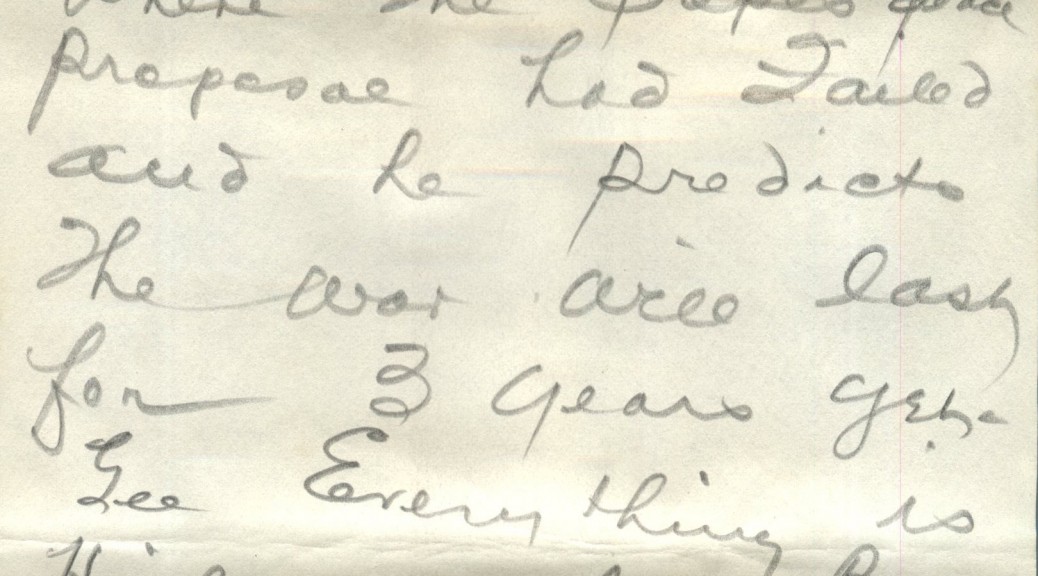 where the Popes peace
proposal had Failed
and he predicts
The war will last
for 3 years yet.
Gee Every thing is